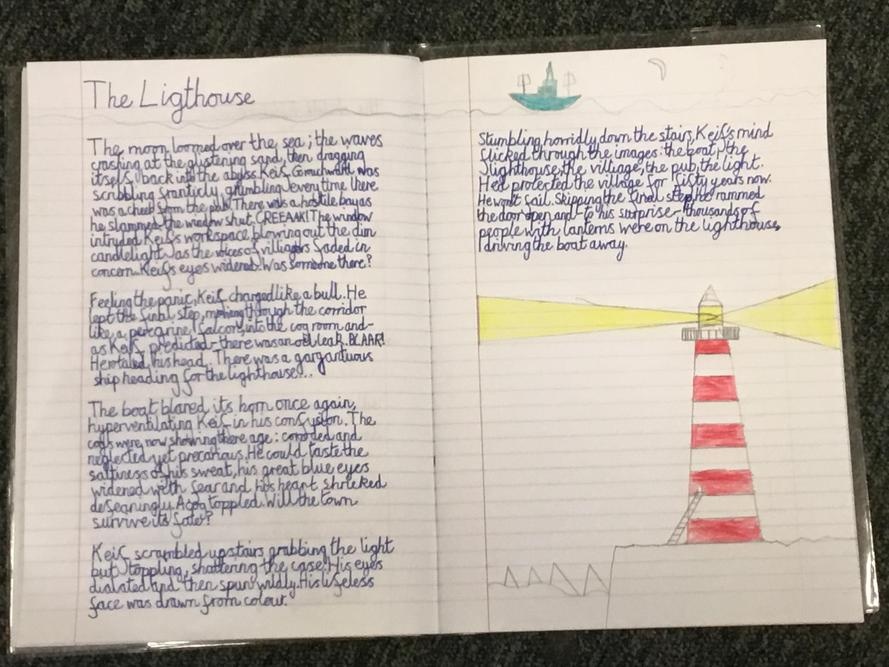 The Ligthouse
The moon loomed over the sea; the waves
crashing at the glistening sand, then dragging
itself back into the abyss. Keif Gomuchward was
scribbling franticly, grumbling every time there
was a cheer from the pub. There was a hostile bang as
he slammed the window shut. CREEAAK! The window
intruded Keif's workspace blowing out the dim
candlelight as the voices of villagers faded in
concern. Keif's eyes widened. Was someone there?
Feeling the panic, Keif charged like a bull. He
lept the final step, moving through the corridor
like a peregrine falcon, into the cog room and-
as Keif predicted-there was an oil leak. BLAAR!
He rotated his head. There was a gargantuas
ship heading for the lighthouse...
The boat blared its horn once again,
hyperventilating Keif in his confustion. The
cogs were now showing there age: corroded and
neglected yet precarious. He could taste the
saltiness of his sweat, his great blue eyes
widened with fear and his heart shrieked
deafeningly. A cog toppled. Will the town
survive its fate?
Keif scrambled upstairs grabbing the light
but toppling, shattering the case! His eyes
dialated and then spun wildly. His lifeless
face was drawn from colour.
Stumbling horridly down the stairs, Keif's mind
flicked through the images: the boat, the
lighthouse, the village, the pub, the light.
He'd protected the village for sixty years now.
He won't fail. Skipping the final step, he rammed
the door open and-to his surprise-thousands of
people with lanterns were on the lighthouse,
driving the boat away.